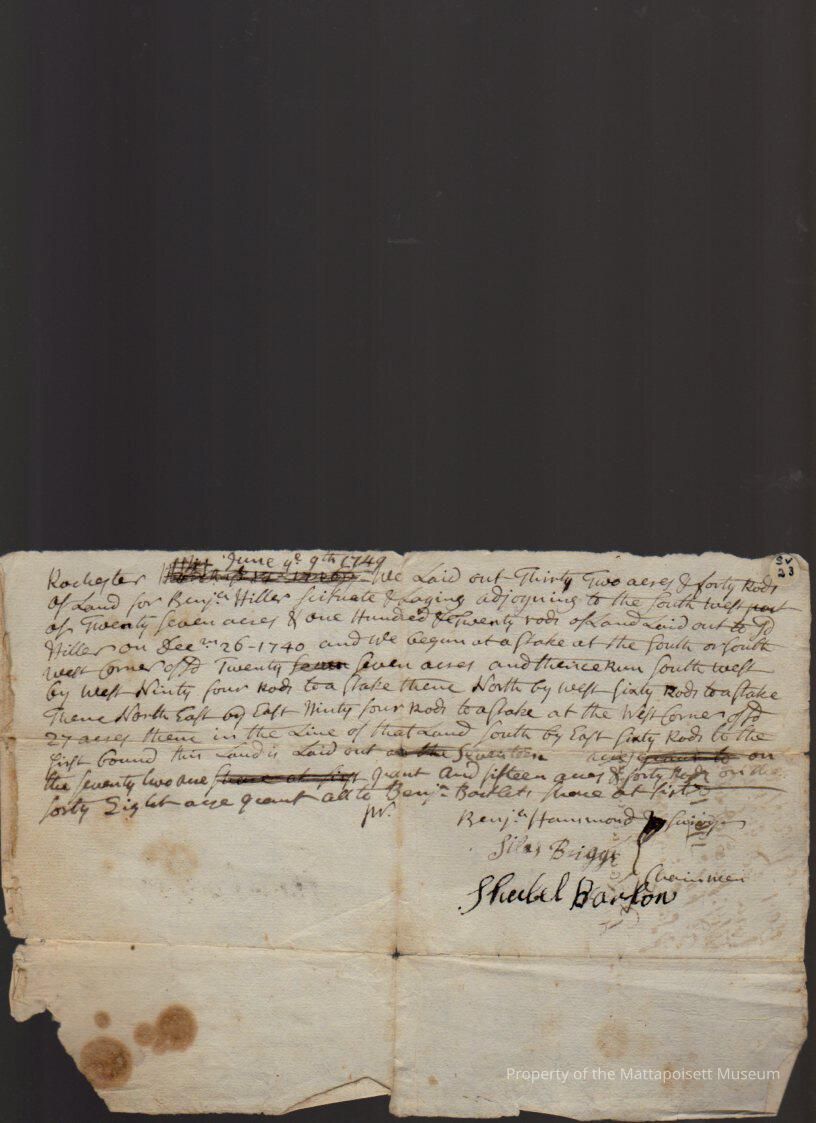 June ye 9th 1749
Sv 23
Rochester We Laid out Thirty Two acres & forty Rods
of Land for Benja Hiller scituate & Laying adjoyning to the South west part
of Twenty Seven acres & one Hundred & Twenty rods of Land Laid out to sd
Hiller on Decm 26-1740 and we begun at a stake at the South or South
west Corner of sd Twenty seven Seven acres and thence Run South west
by west Ninty four Rods to a stake thence North by west Sixty Rods to a stake
Thence North East by East Ninty four Rods to a stake at the West Corner of sd
27 acres thence in the Line of that Land South by East Sixty Rods to the
first bound this Land is Laid out on the Seventeen acre grant to on
the Seventy two acre share at first grant and fifteen acres & forty Rods on the
forty Eight acre grant all to Benja Bartlets share at first
pr.
Benja Hammond Jr
Silas Briggs
Chainmen
Shubel Barlow
Property of the Mattapoisett Museum